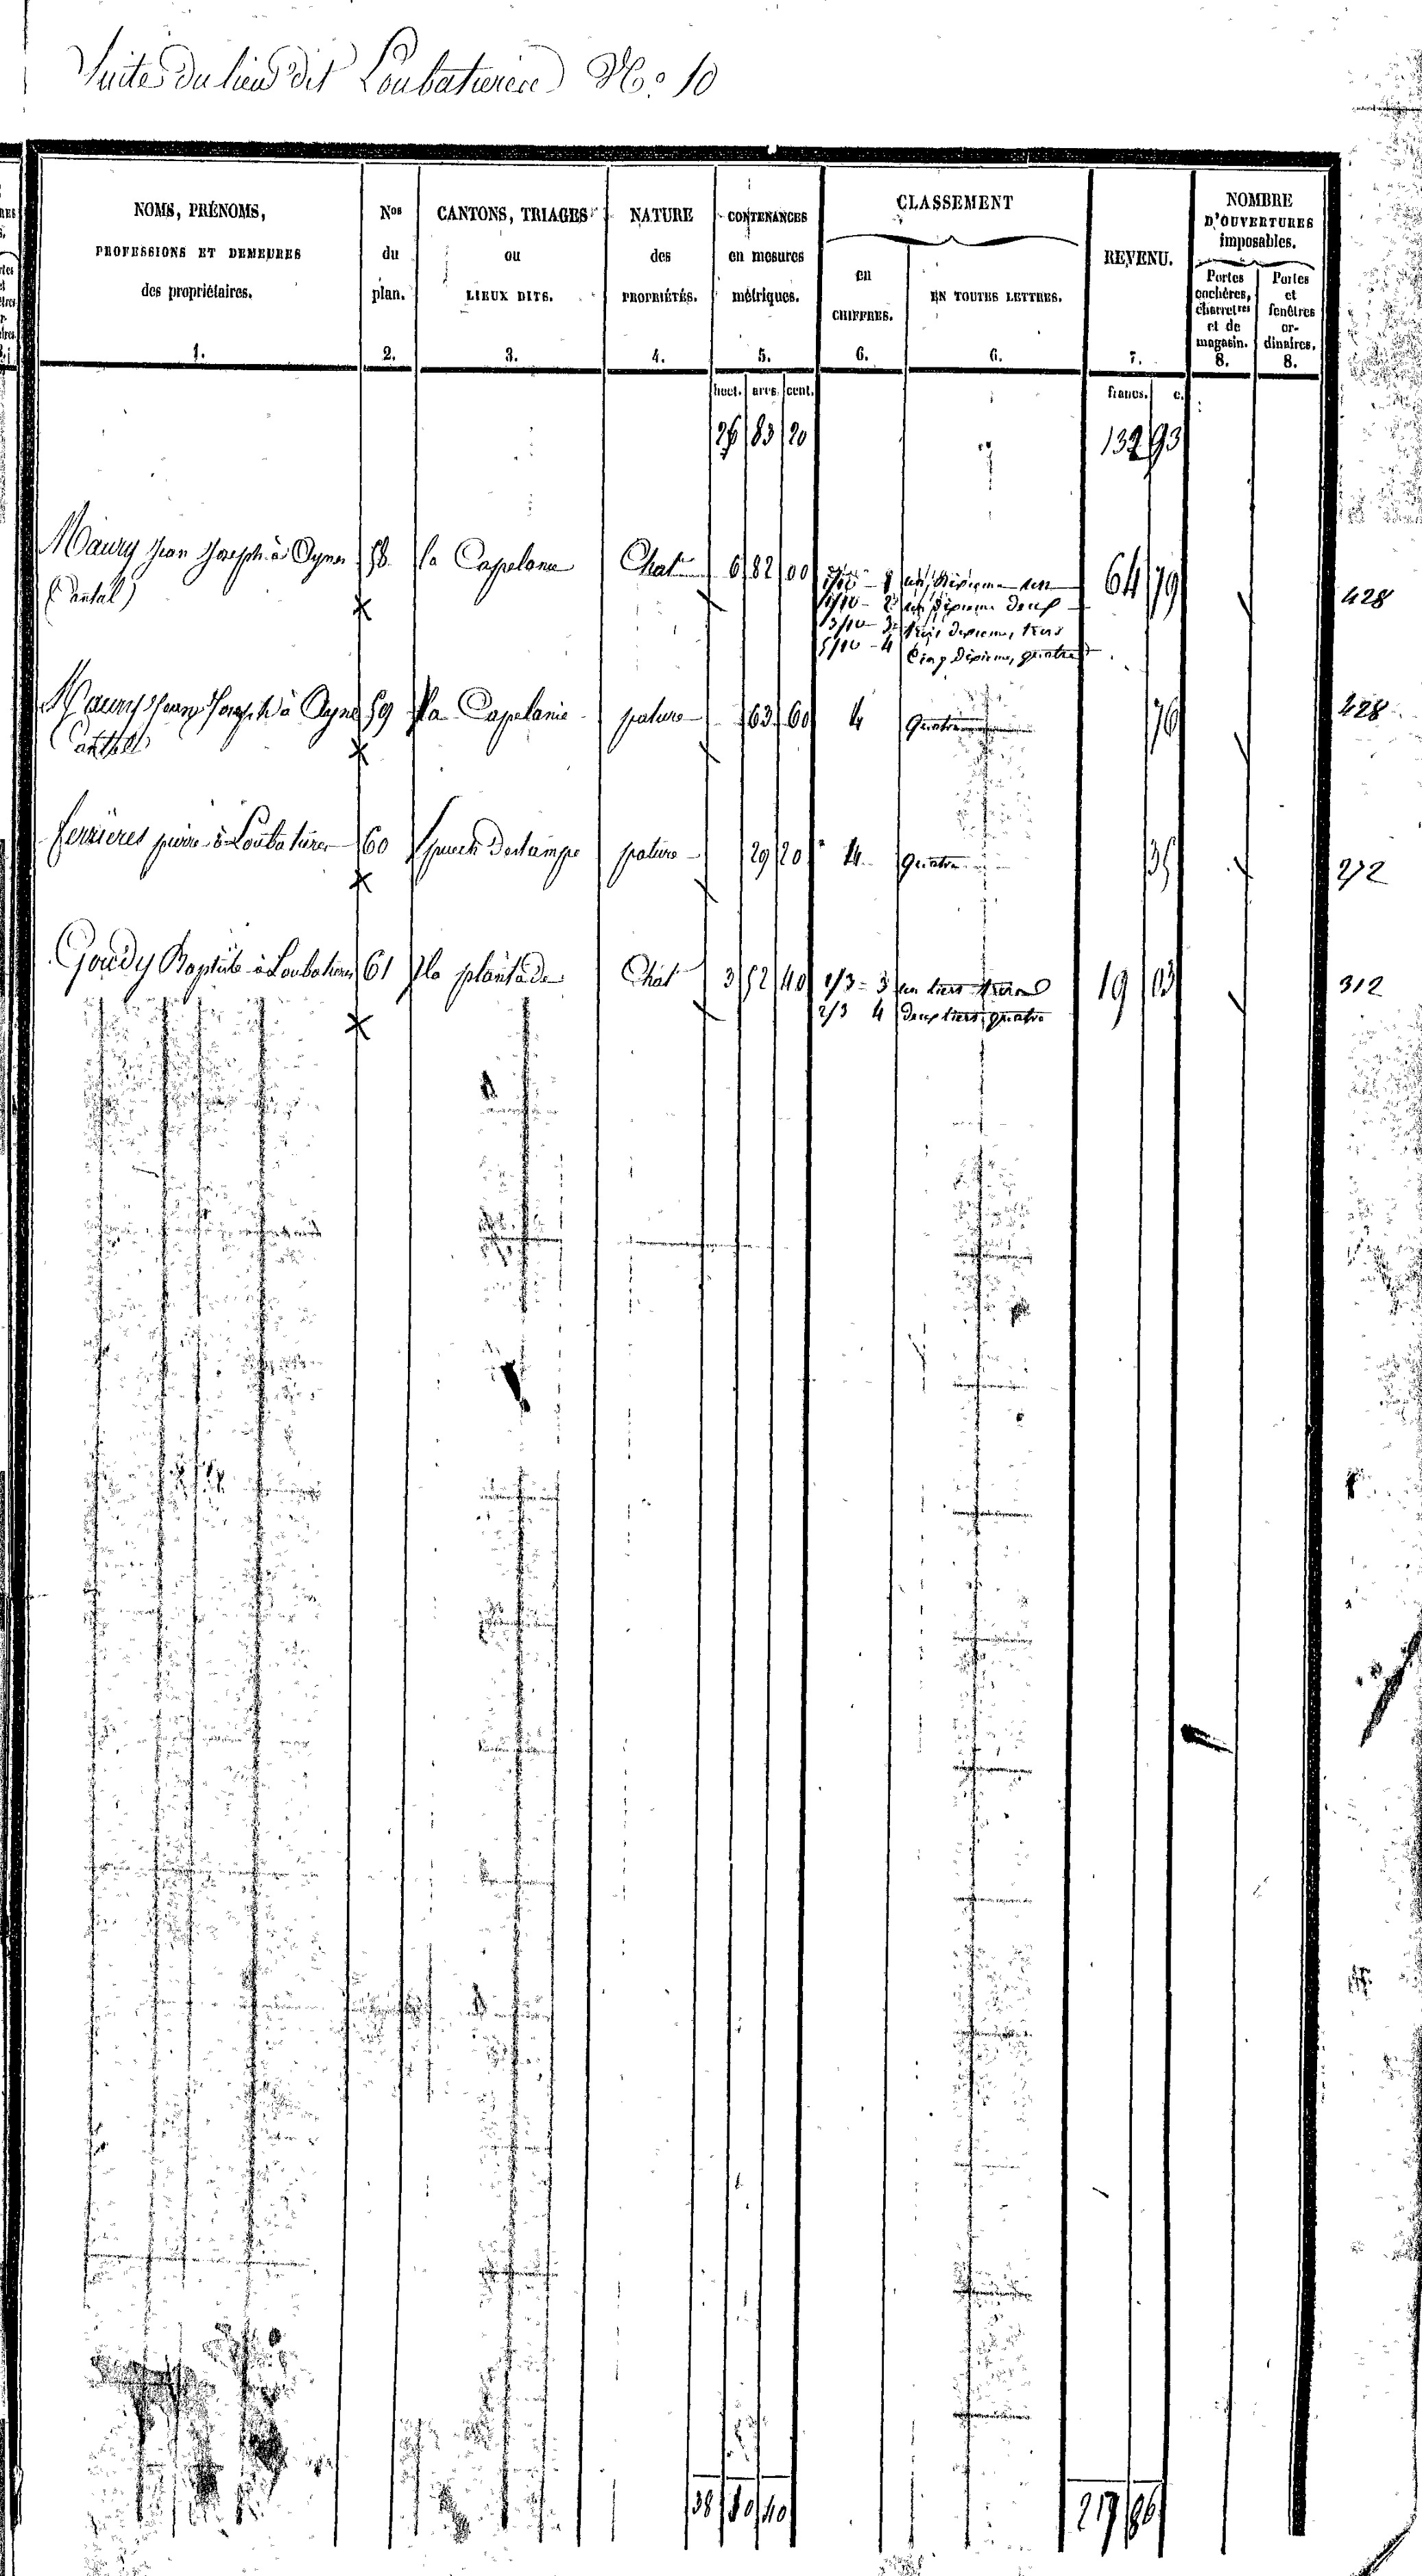 Suite du lieu dit Loubaturiere N.o 10
NOMS, PRÉNOMS,
PROFESSIONS ET DEMEURES
des propriétaires.
1.
Nos
du
plan.
2.
CANTONS, TRIAGES
ou
LIEUX DITS.
3.
NATURE
des
PROPRIÉTÉS.
4.
CONTENANCES
en mesures
métriques.
5.
CLASSEMENT
en
CHIFFRES.
6.
EN TOUTES LETTRES.
6.
REVENU.
7.
NOMBRE
D'OUVERTURES
imposables.
Portes
cochères,
charretres
et de
magasin.
8.
Portes
et
fenêtres
or-
dinaires.
8.
hect. ares. cent. francs. c.
26 83 20 132 93
Maury Jean Joseph à 58 la Capelanie Chat 6 82 00 1/10 - 1 un dixieme un 64 79 428
(Cantal) 1/10 - 2 un dixieme deux
3/10 - 3 trois dixieme, trois
5/10 - 4 Cinq dixieme, quatre
Maury Jean Joseph à 59 la Capelanie pature 63 60 4 Quatre 76 428
Cantal
ferrieres pierre à Loubaturiere 60 pature 29 20 4 Quatre 35 272
Goudy Baptiste à Loubaturiere 61 la plantade Chat 3 52 40 1/3 - 3 un tiers trois 19 03 312
2/3 4 deux tiers quatre
38 10 40 217 86